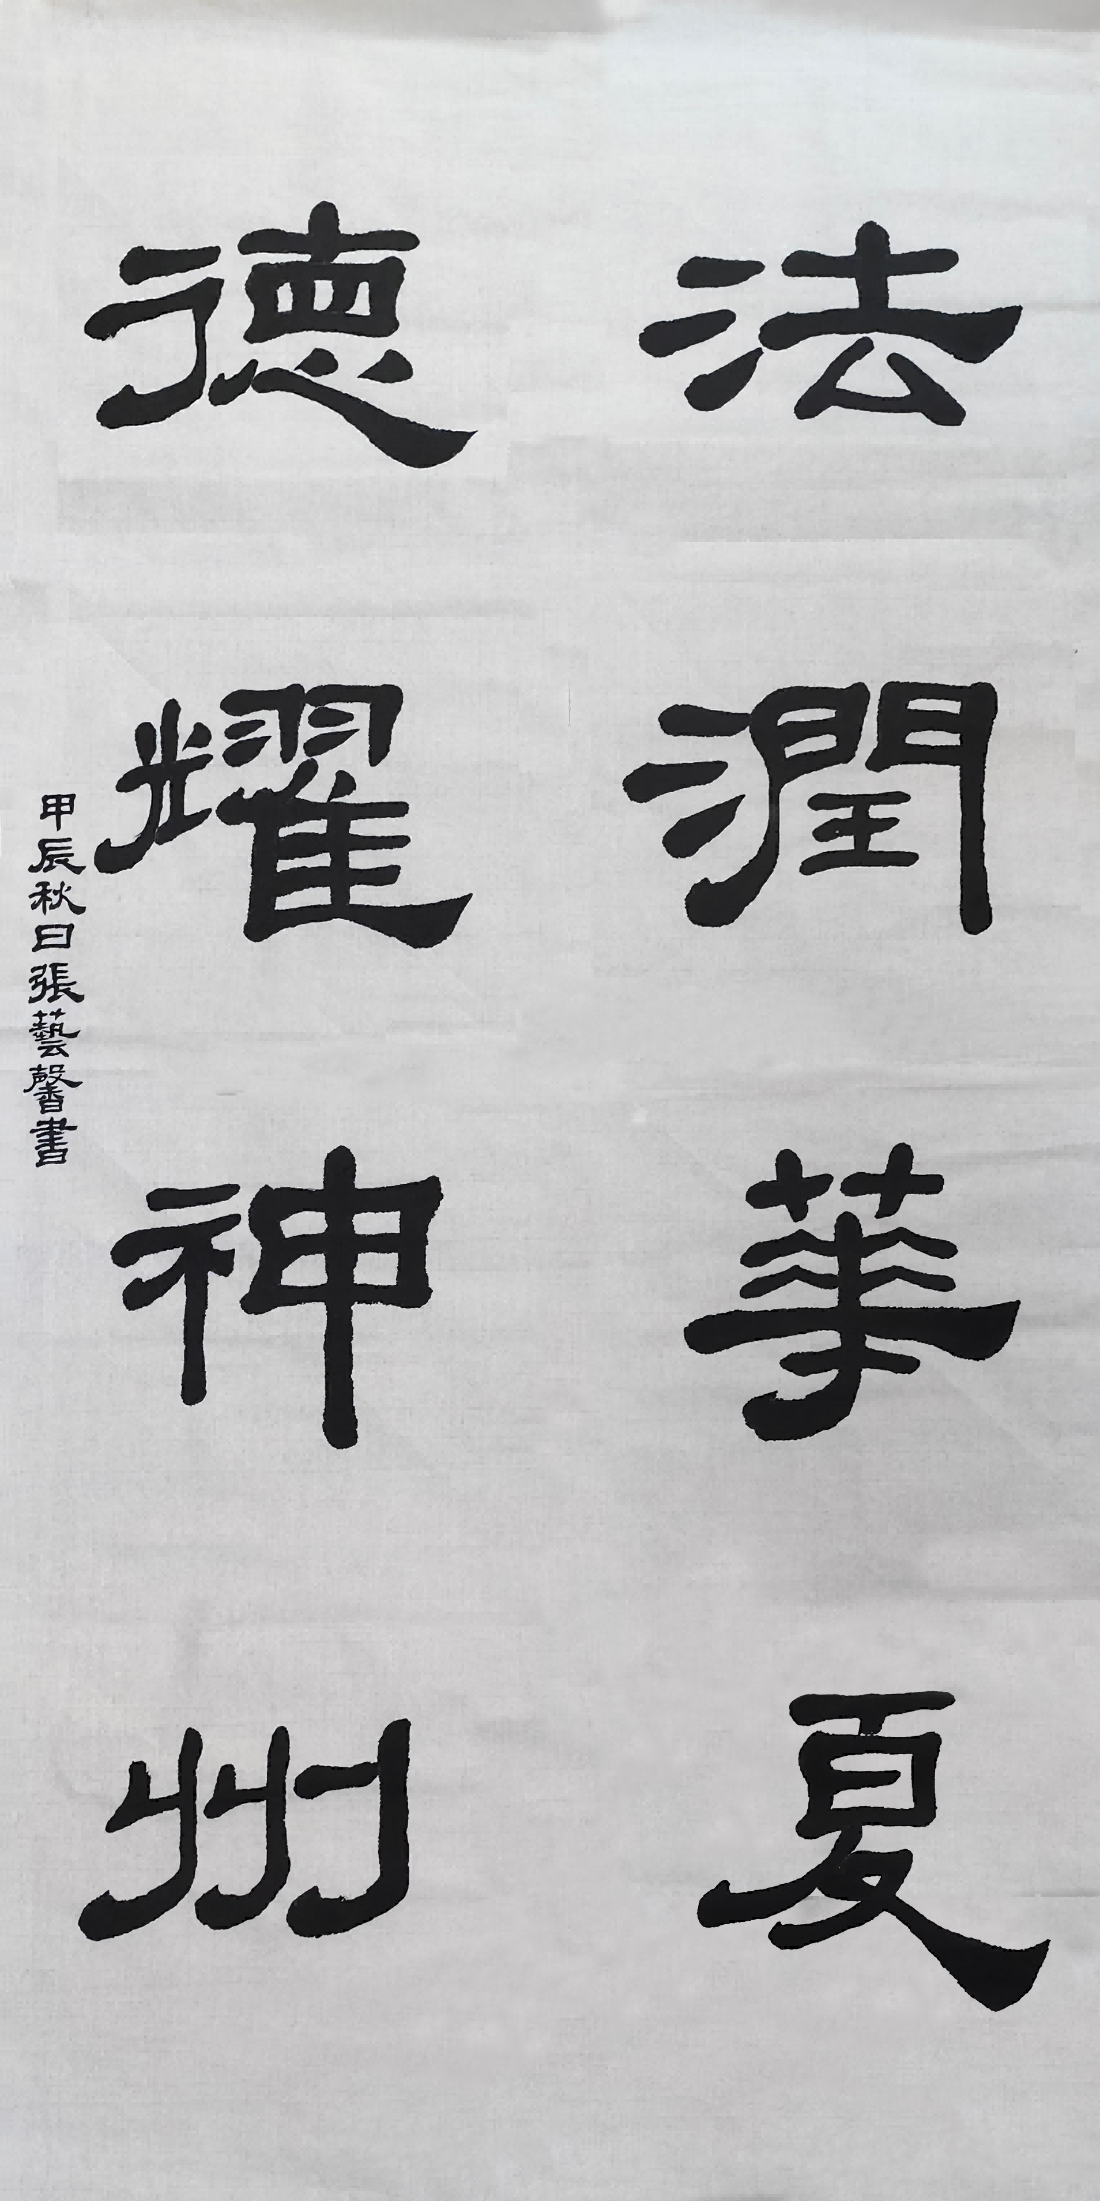 法潤華夏
德耀神州
甲辰秋日張藝馨書